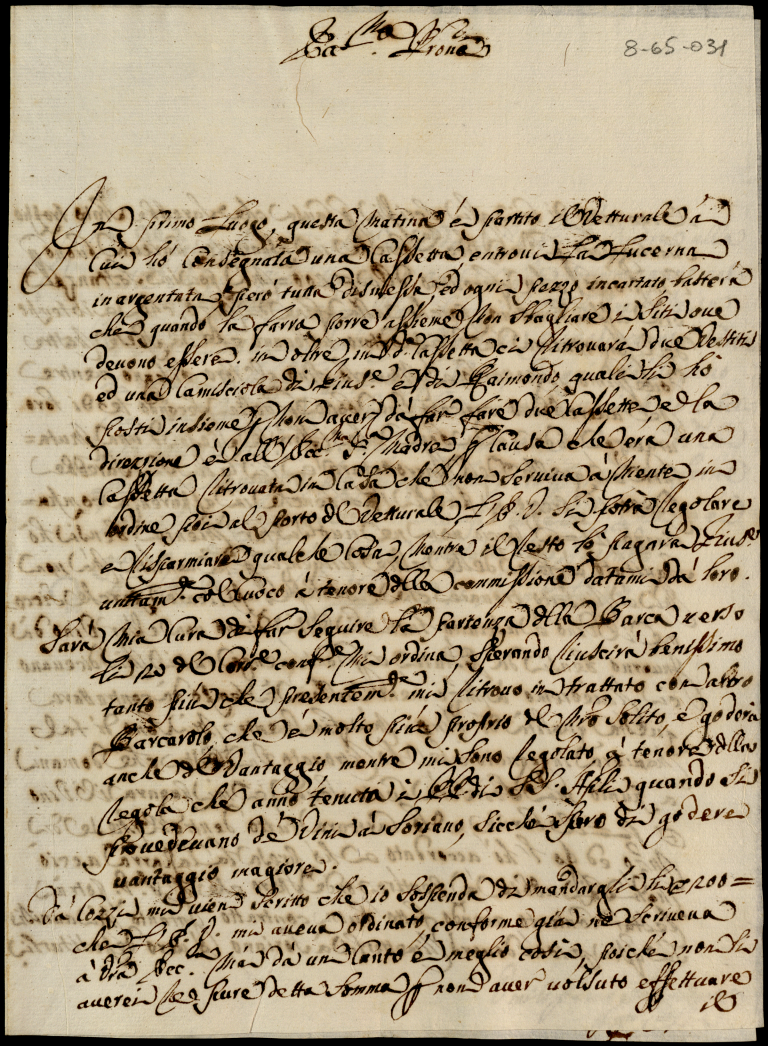 Ecc.ma Prona
8-65-031
In primo Luogo, questa Matina è partito il Vetturale à
cui hò Consegnata una Cassetta entrovi La Lucerna
inargentata, però tutta dismessa, ed ogni pezzo incartato, basterà
che quando la farra porre assieme Non sbagliare i siti ove
devono essere. in oltre in d.a Cassetta ci ritrovarà due Vestiti
ed una Camisciola di Gius.e e di Raimondo, quali li hò
posti insieme p non aver dà far fare due Cassette, e la
direzzione è all' Ecc.ma S.ra Madre p Causa che era una
Cassetta ritrovata in Casa che non serviva à niente, in
ordine poi al porto del Vetturale, L'E. V. si potrà regolare
e risparmiare qualche Cosa, mentre il resto lo pagarà Gius.e
unitam.e col Cuoco à tenore della commissione datami dà loro.
Sarà Mia Cura di far seguire la partenza della Barca verso
li 20 del Corr.e conf.e Mi ordina, sperando riuscirà benissimo
tanto più che presentem.e mi ritrovo in trattato con altro
Barcarolo, che è molto più proprio del Nro Solito, e godoia
anche del Vantaggio mentre mi sono regolato à tenore della
regola che anno tenuta i quando si
provedevano de Vini à Soriano, sicchè spero di godere
vantaggio magiore.
Dà Cozzi mi vien scritto che io sospenda di mandargli li 200=
che L'E. V. mi aveva ordinato, conforme già ne scriveva
à Vra Ecc.a Mà dà un Canto è meglio così, poichè non li
averei nè pure detta somma p non aver voluto effettuare
il